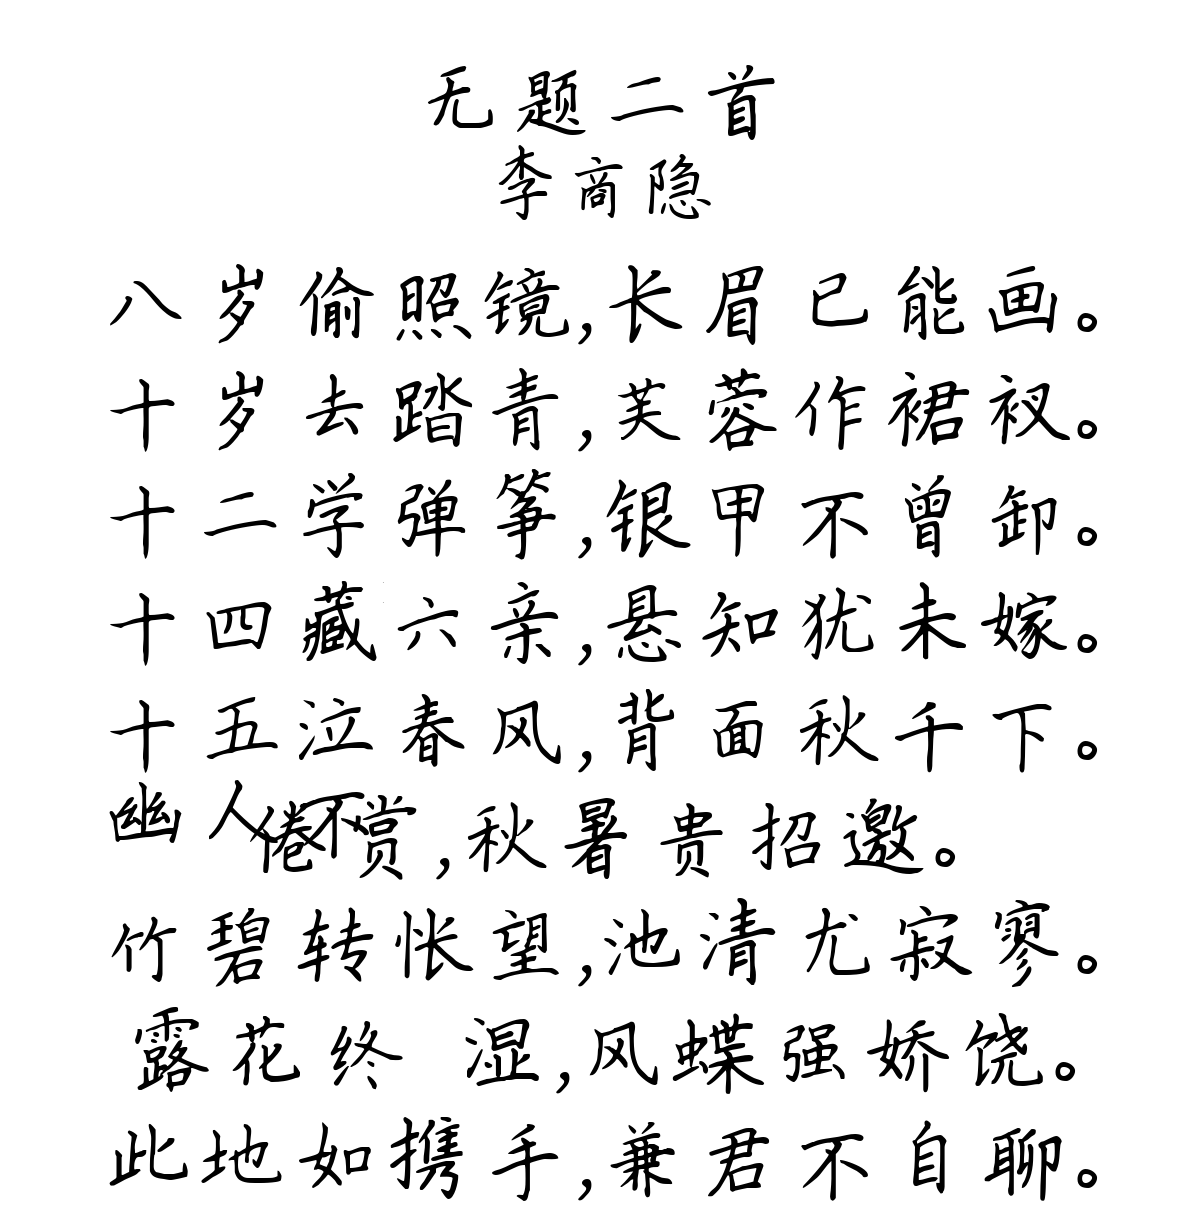 无题二首
李商隐
八岁偷照镜,长眉已能画。
十岁去踏青,芙蓉作裙衩。
十二学弹筝,银甲不曾卸。
十四藏六亲,悬知犹未嫁。
十五泣春风,背面秋千下。
幽人不倦赏,秋暑贵招邀。
竹碧转怅望,池清尤寂寥。
露花终 湿,风蝶强娇饶。
此地如携手,兼君不自聊。